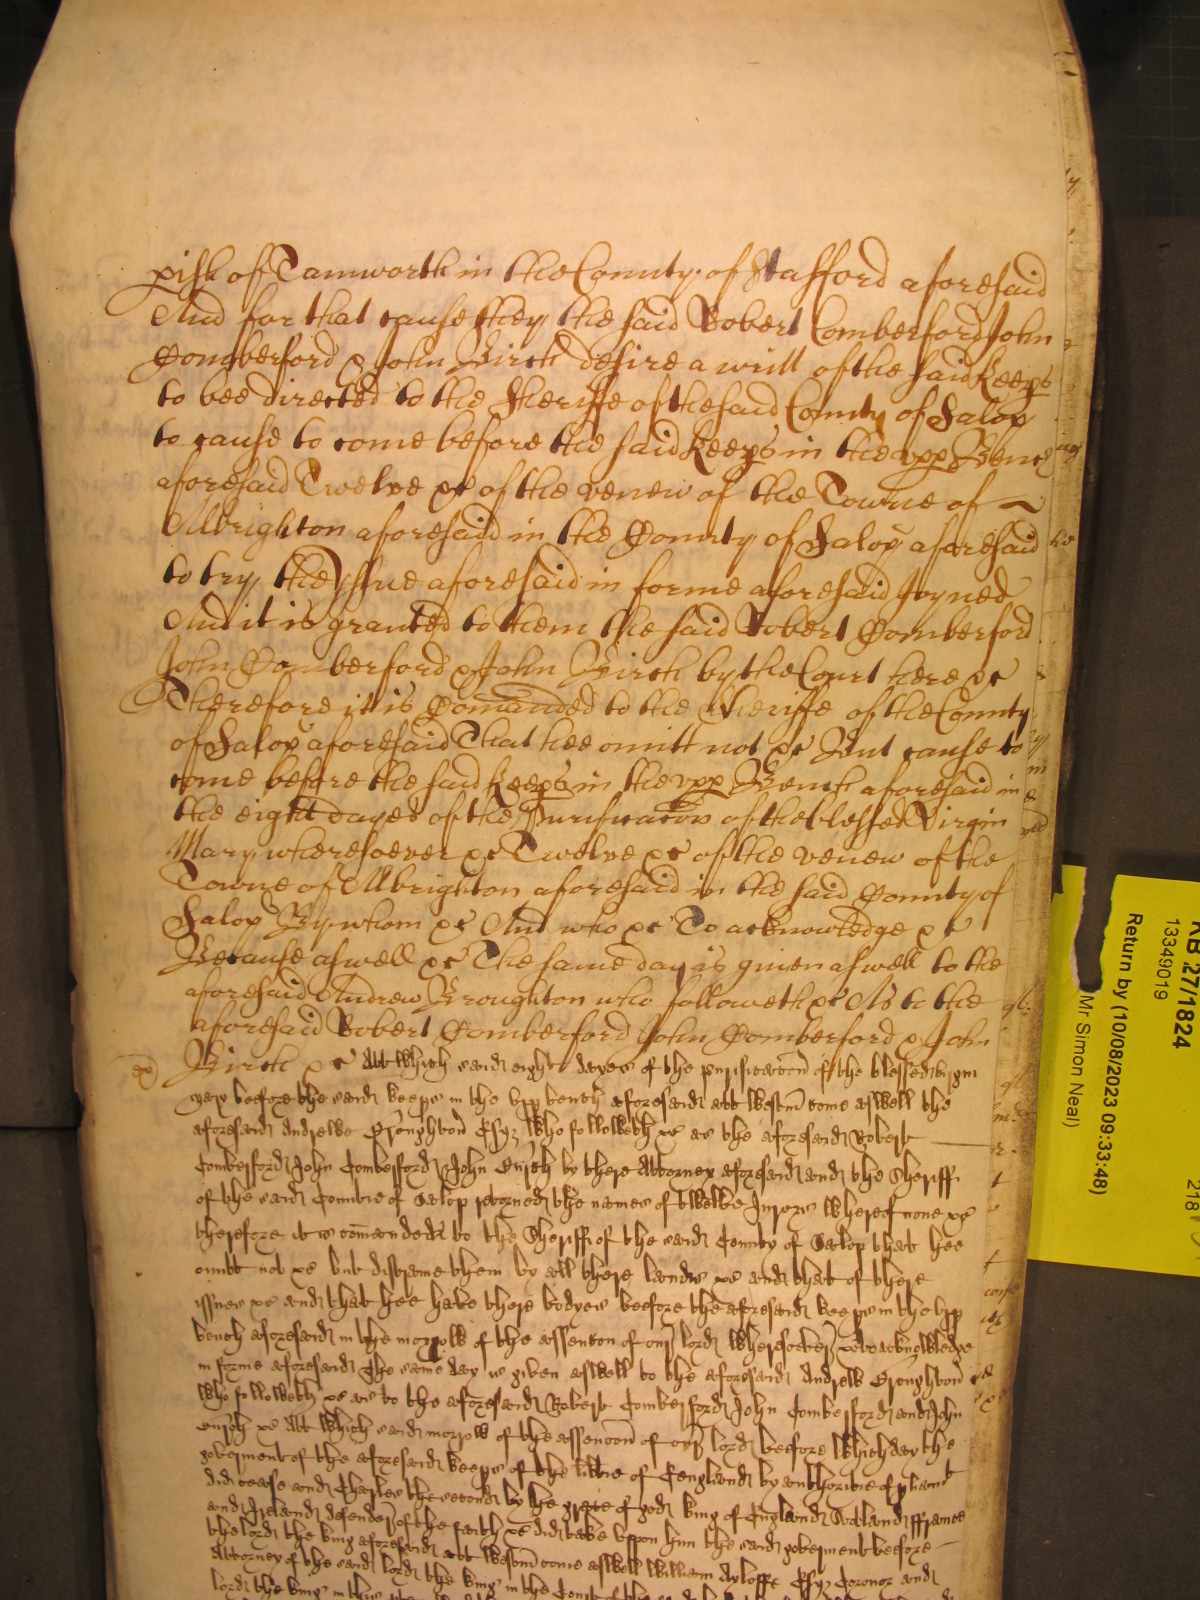 pish of Tamworth in the County of Stafford aforesaid
And for that cause they the said Robert Comberford John
Comberford & John Birch desire a writt of the said keeps
to bee directed to the Sheriffe of the said County of Salop
to cause to come before the said keeps in the upp Bench
aforesaid Twelve &c of the venew of the Towne of
Albrighton aforesaid in the County of Salop aforesaid
to try the yssue aforesaid in forme aforesaid Joyned
And it is granted to them the said Robert Comberford
John Comberford & John Birch by the Court here &c
Therefore it is Comanded to the Sheriffe of the County
of Salop aforesaid That hee omitt not &c But cause to
come before the said keeps in the upp Bench aforesaid in
the eight dayes of the Purificacon of the blessed Virgin
Mary wheresoever &c Twelve &c of the venew of the
Towne of Albrighton aforesaid in the said County of
Salop By whom &c And who &c To acknowledge &c
Because aswell &c The same day is given aswell to the
aforesaid Andrew Broughton who followeth &c As to the
aforesaid Robert Comberford John Comberford & John
Birch &c Att which said eight dayes of the purificacon of the blessed virgin
mary before the said keeps in the upp bench aforesaid att Westm come aswell the
aforesaid Andrewe Broughton Esqr who followeth &c as the aforesaid Robert
Comberford John Comberford John Birch by there Attorney aforesaid and the Sheriff
of the said Countie of Salop retorned the names of twelve Jurors whereof none &c
therefore it is comanded to the Sheriff of the said County of Salop that hee
omitt not &c but distraine them by all there lands &c and that of there
issues &c and that hee have there bodyes before the aforesaid keeps in the upp
bench aforesaid in the morrow of the assention of our lord wheresoever &c to acknowledge
in forme aforesaid The same day is given aswell to the aforesaid Andrew Broughton
who followeth &c as to the aforesaid Robert Comberford John Comberford and John
Birch &c Att which said morrow of the assencon of our lord before which day the
goverment of the aforesaid keeps of the libtie of England by authoritie of pliamt
did cease and Charles the second by the grace of god king of England Scotland ffrance
and Ireland defender of the faith &c did take uppon him the said goverment before
the lord the king aforesaid att Westm come aswell William Ayloffe Esqr Coronor and
Attorney of the said lord the king in the Court
lord the king
KB 27/1824
13349019
Return by (10/08/2023 09:33:48)
Mr Simon Neal)